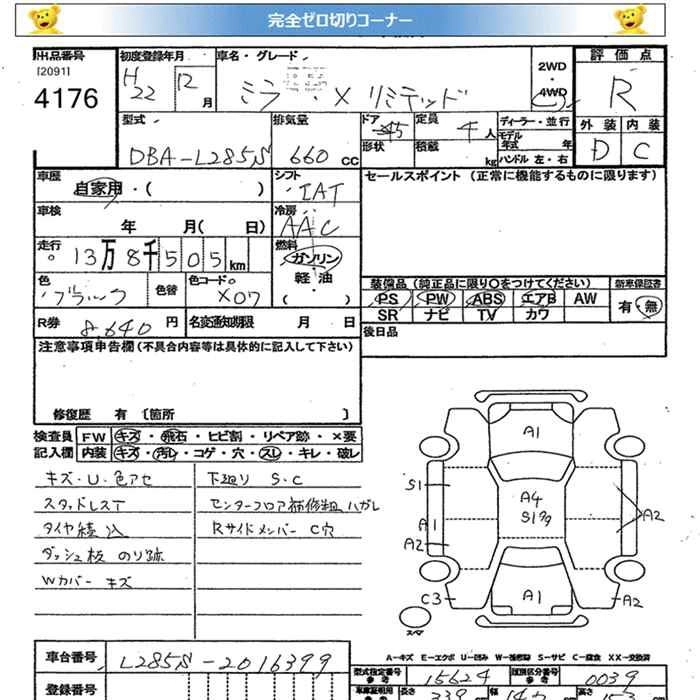 完全ゼロ切りコーナー
出品番号 初度登録年月 車名・グレード 2WD・4WD 評価点
[2091]
4176 H22年 12月 ミラ X リミテッド R
型式 排気量 ドア 形状 定員 積載 ディーラー・並行 モデル年式 年 ハンドル 左・右 外装 内装
DBA-L285S 660cc 5 4人 kg D C
車歴 シフト セールスポイント (正常に機能するものに限ります)
自家用・( ) IAT
車検 年 月( 日) 冷房 AAC
走行 13万8千505km 燃料 ガソリン 軽・油 ( )
色 ブラック 色替 色コードNo X07
装備品 (純正品に限り○をつけてください) 新車保証書
PS PW ABS エアB AW 有・無
SR ナビ TV カワ
R券 8,640円 名変通知期限 月 日 後日品
注意事項申告欄(不具合内容等は具体的に記入して下さい)
修復歴 有 〔箇所 〕
検査員 FW キズ・飛石・ヒビ割・リペア跡・×要
記入欄 内装 キズ・汚レ・コゲ・穴・スレ・キレ・破レ
キズ・U・色アセ 下廻り S・C
スタッドレスT センターフロア補修粗 ハガレ
タイヤ積込 Rサイドメンバー C穴
ダッシュ板 のり跡
Wカバー キズ
A1
S1 A4
S1
A1 A2
A2
C3 A1 A2
スペア
A-キズ E-エクボ U-凹み W-補修跡 S-サビ C-腐食 XX-交換済
車台番号 L285S-2016399
型式指定番号 参考 15624 類別区分番号 参考 0039
登録番号 車庫証明用 参考 長さ 339 幅 147 高さ 153